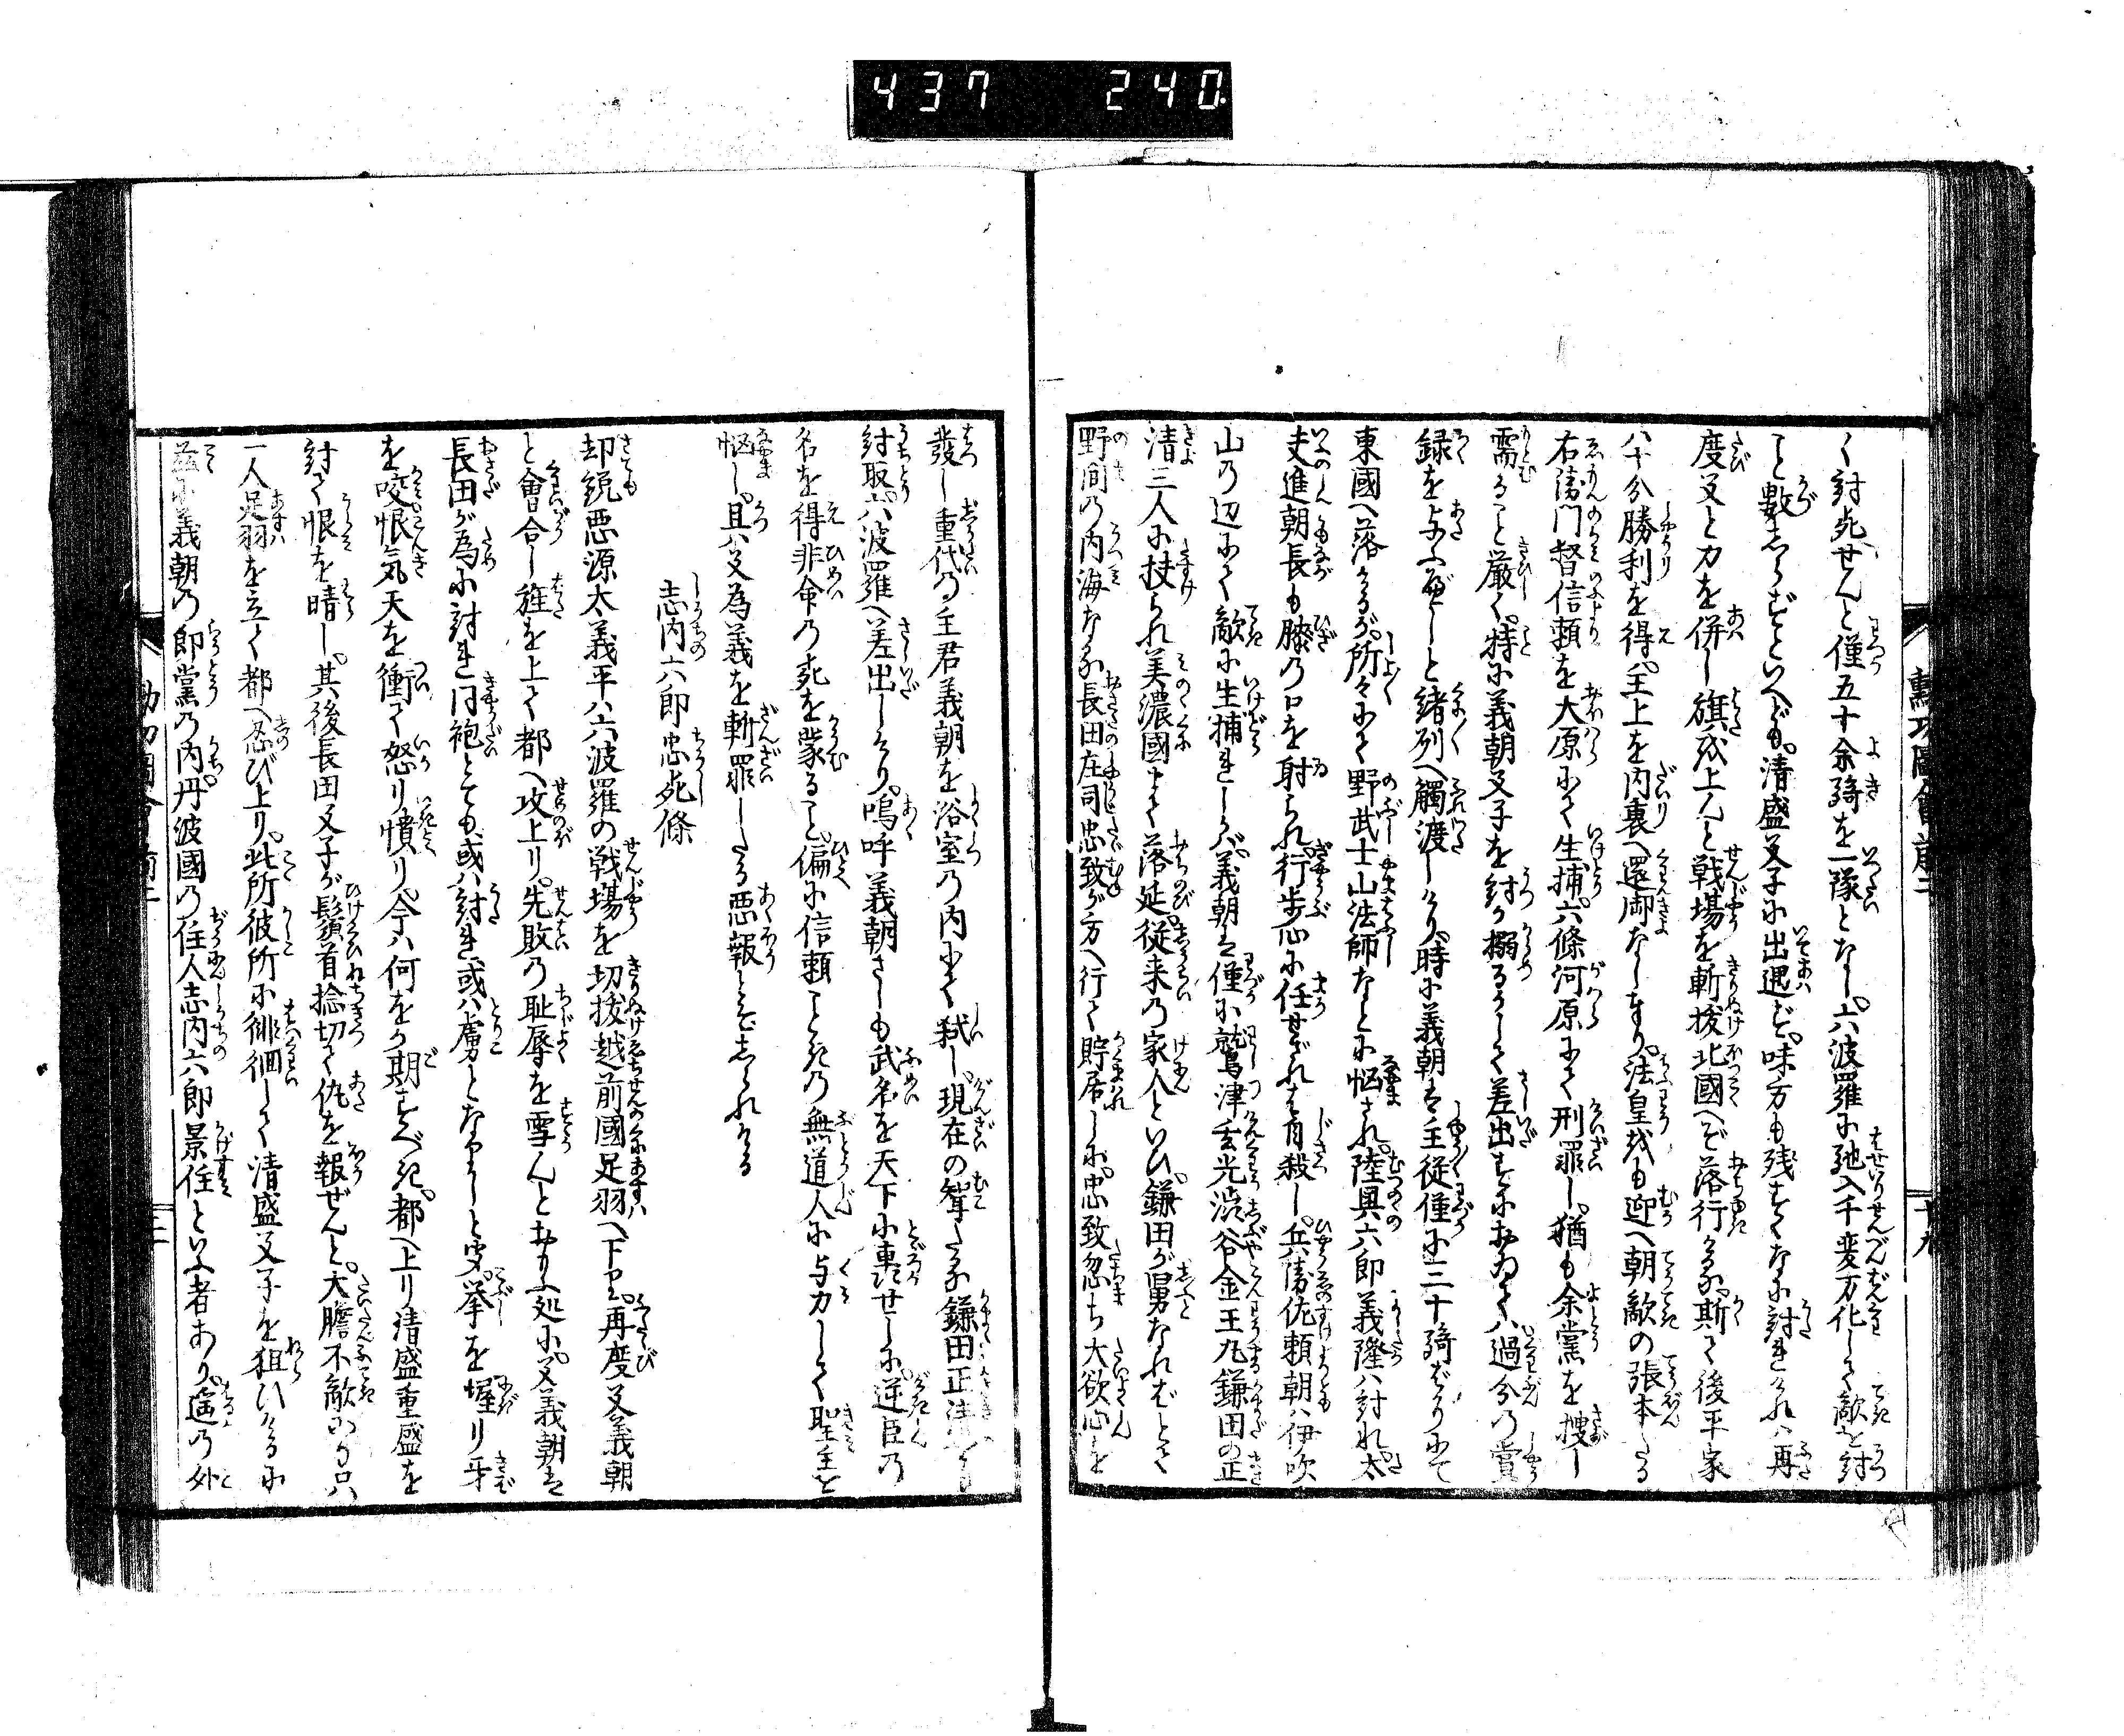 437 240
勲功圖會前二
十九
く討死せんと僅五十余騎を一隊となし。六波羅に馳入千変万化して敵を討
こと數しらずといへども。清盛父子に出遇ず。味方も残すくなに討れけれハ再
度父と力を併し旗を上んと戦場を斬抜北國へぞ落行ける。斯て後平家
ハ十分勝利を得。主上を内裏へ還御なしまゐらせ。法皇をも迎へ朝敵の張本たる
右衛門督信頼を大原にて生捕。六條河原にて刑罪し。猶も余黨を捜し
需ること厳く。特に義朝父子を討か搦るかして差出すにおゐてハ過分の賞
録を与ふべしと緒列へ觸渡しけり。時に義朝は主従僅に三十騎ばかりにて
東國へ落けるが。所々にて野武士山法師などに悩され。陸奥六郎義隆ハ討れ。太
夫進朝長も膝の口を射られ。行歩心に任せざれば自殺し。兵衛佐頼朝ハ伊吹
山の辺にて敵に生捕れしかバ。義朝は僅に鷲津玄光渋谷金王丸鎌田の正
清三人に扶られ美濃國まで落延。従来の家人といひ。鎌田が舅なればとて
野間の内海なる長田庄司忠致が方へ行て貯居しに。忠致忽ち大欲心を
發し重代の主君義朝を浴室の内にて弑し。現在の聟たる鎌田正清をも
討取。六波羅へ差出しけり。嗚呼義朝さしも武名を天下に轟せしに。逆臣の
名を得非命の死を蒙ること。偏に信頼ごときの無道人に与力して聖主を
悩し。且ハ父為義を斬罪したる悪報とぞしられける
志内六郎忠死條
却説悪源太義平ハ六波羅の戦場を切抜越前國足羽へ下り。再度父義朝
と會合し旌を上て都へ攻上り。先敗の耻辱を雪んとおもふ処に。父義朝は
長田が為に討れ同袍とても。或ハ討れ或ハ虜となりしと聞。拳を握り牙
を咬恨気天を衝て怒り憤り。今ハ何をか期すべき。都へ上り清盛重盛を
討て恨を晴し。其後長田父子が鬚首捻切て仇を報ぜんと。大膽不敵にも只
一人足羽を立て都へ忍び上り。此所彼所に徘徊して清盛父子を狙ひけるに
茲に義朝の郎黨の内。丹波國の住人志内六郎景住といふ者あり。遥の外